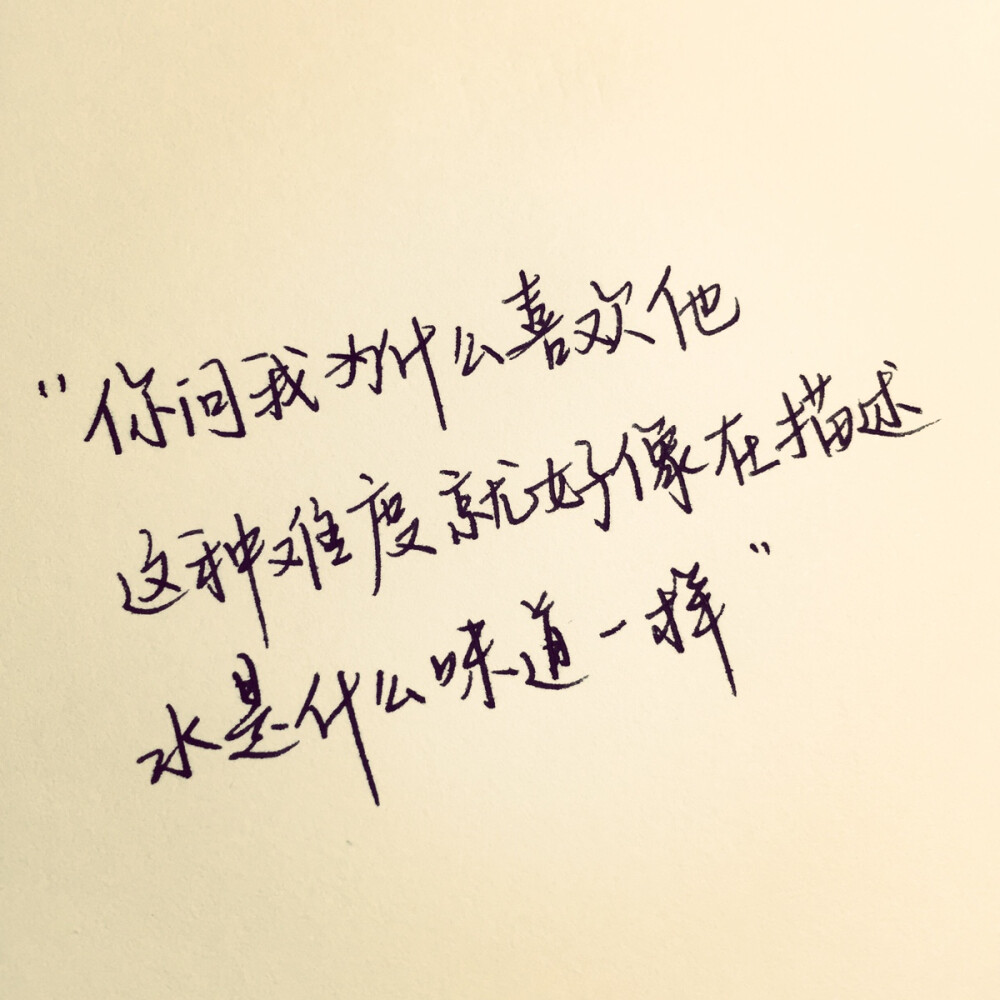 "你问我为什么喜欢他
这种难度就好像在描述
水是什么味道一样"